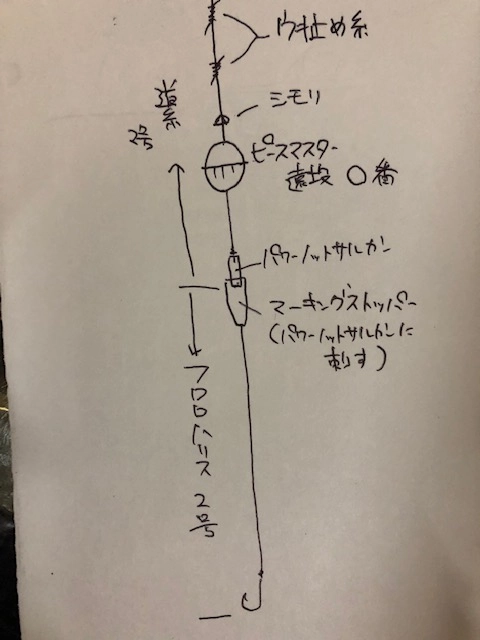 ウキ止め糸
シモリ
道糸
2号
ピースマスター
遠投 0番
パワーノットサルカン
マーキングストッパー
(パワーノットサルカンに
刺す)
フロロハリス 2号